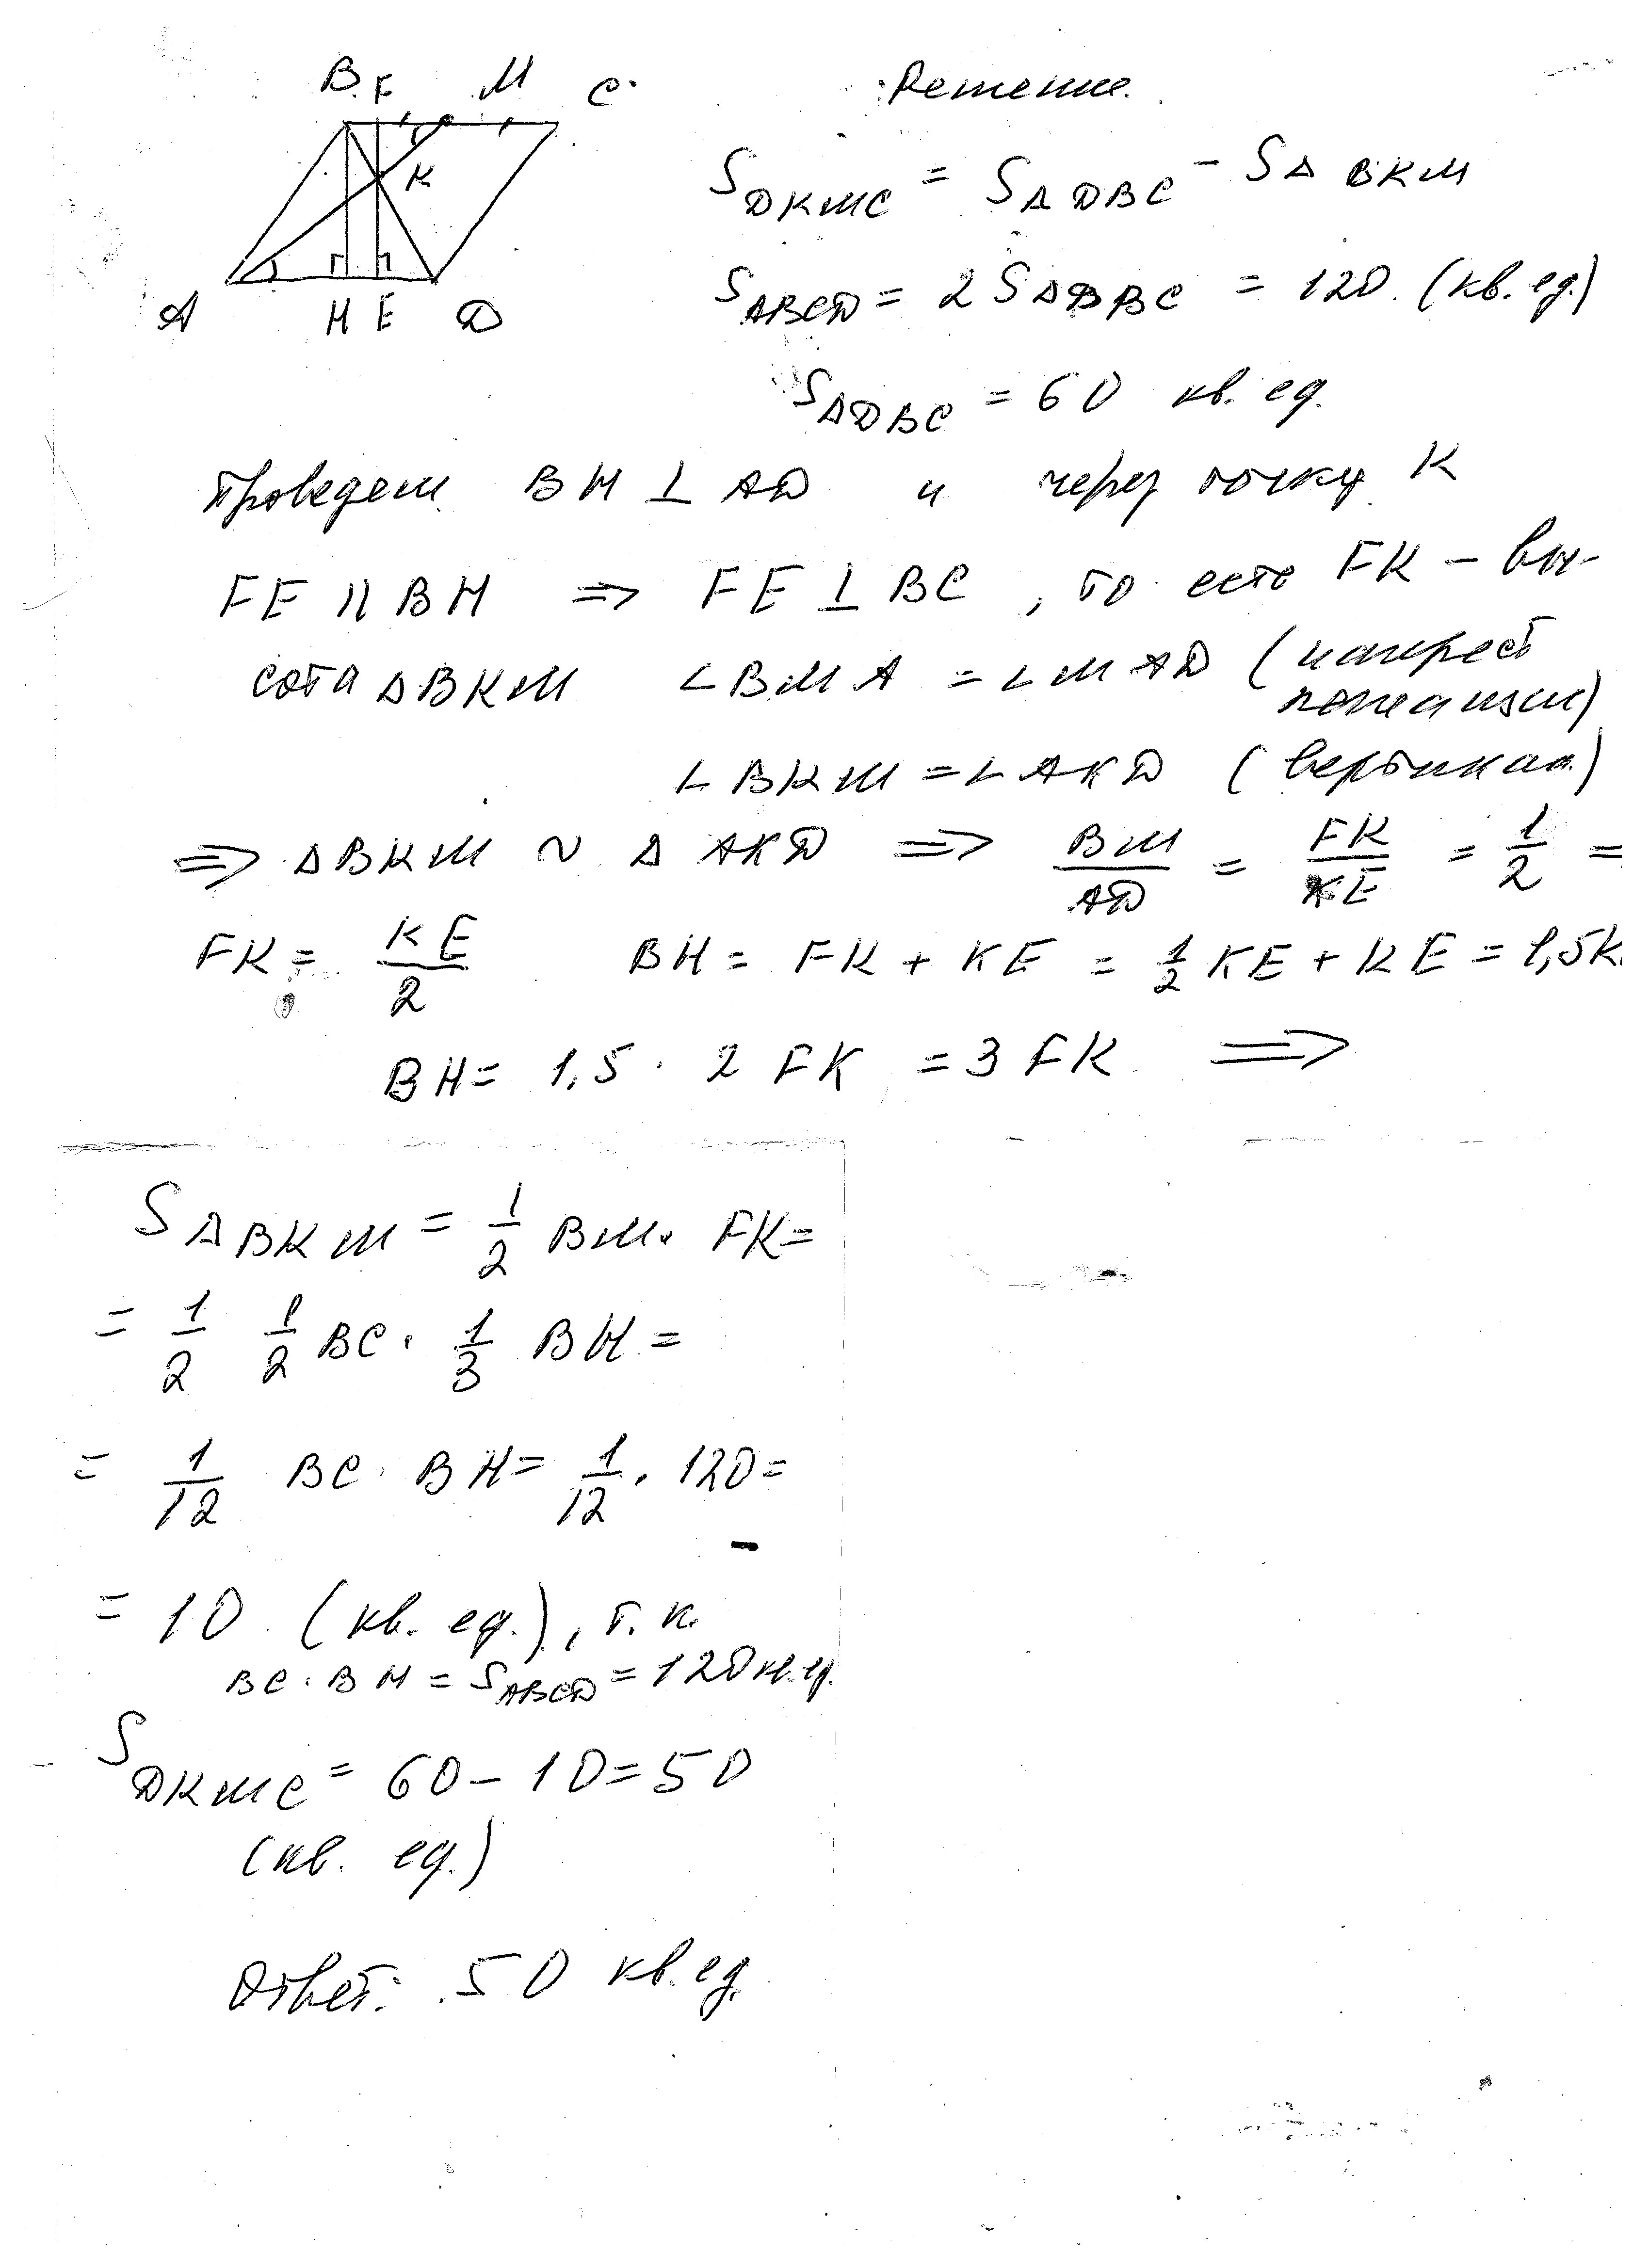 B F M C
K
A H E D
Решение.
S DKMC = S Δ DBC - S Δ BKM
S ABCD = 2 S Δ DBC = 120 (кв. ед.)
S Δ DBC = 60 кв. ед.
Проведем BH ⊥ AD и через точку K
FE || BH => FE ⊥ BC, то есть FK - вы-
сота Δ BKM ∠ BMA = ∠ MAD (накрест
лежащие)
∠ BKM = ∠ AKD (вертикал.)
=> Δ BKM ~ Δ AKD => BM/AD = FK/KE = 1/2 =
FK = KE/2 BH = FK + KE = 1/2 KE + KE = 1,5K
BH = 1,5 · 2 FK = 3 FK =>
S Δ BKM = 1/2 BM · FK =
= 1/2 1/2 BC · 1/3 BH =
= 1/12 BC · BH = 1/12 · 120 =
= 10 (кв. ед.), т. к.
BC · BH = S ABCD = 120 кв. ед.
S DKMC = 60 - 10 = 50
(кв. ед.)
Ответ: 50 кв. ед.